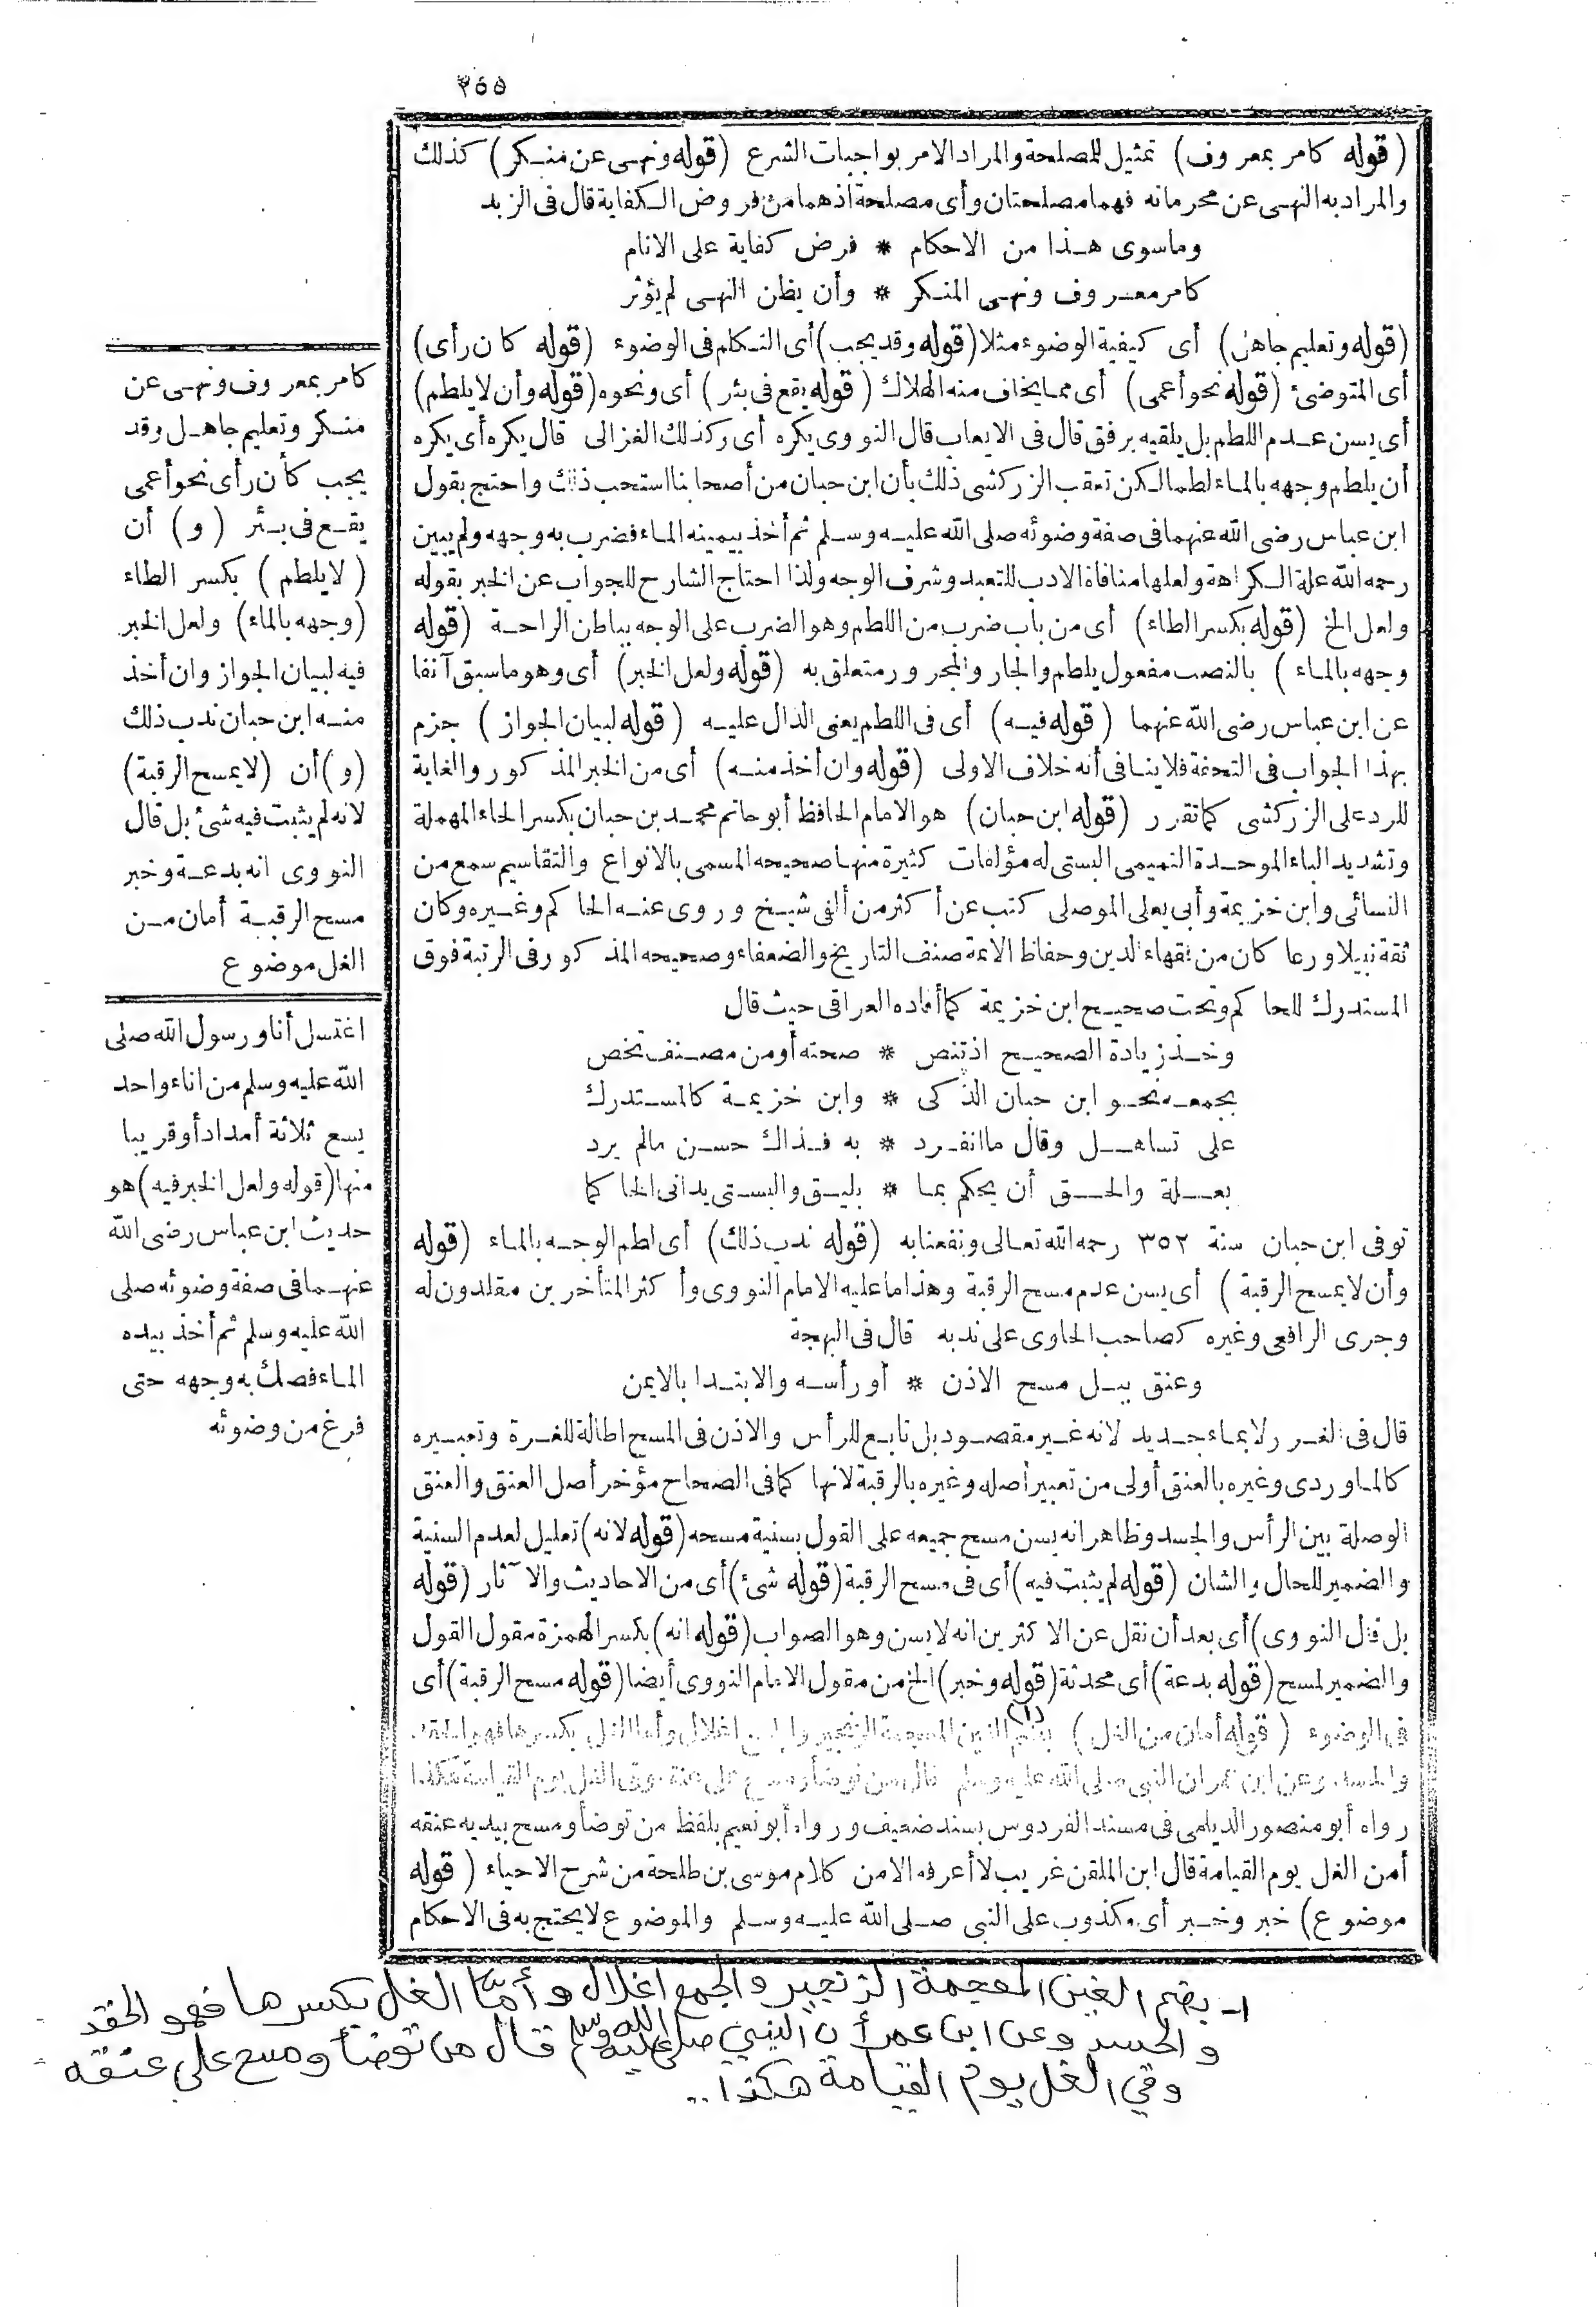 ٣٥٥
(قوله كامر بمعروف) تمثيل للمصلحة والمراد الامر بواجبات الشرع (قوله ونهى عن منكر) كذلك
والمراد به النهى عن محرماته فهما مصلحتان وأى مصلحة اذهما من فروض الكفاية قال فى الزبد
وماسوى هذا من الاحكام * فرض كفاية على الانام
كامر معروف ونهى المنكر * وأن يظن النهى لم يؤثر
(قوله وتعليم جاهل) أى كيفية الوضوء مثلا (قوله وقد يجب) أى التكلم فى الوضوء (قوله كان رأى)
أى المتوضئ (قوله نحو أعمى) أى مما يخاف منه الهلاك (قوله يقع فى بئر) أى ونحوه (قوله وأن لا يلطم)
أى يسن عدم اللطم بل يلقيه برفق قال فى الايعاب قال النووى يكره أى وكذلك الغزالى قال يكره أى يكره
أن يلطم وجهه بالماء لطما لكن تعقب الزركشى ذلك بأن ابن حبان من أصحابنا استحب ذلك واحتج بقول
ابن عباس رضى الله عنهما فى صفة وضوئه صلى الله عليه وسلم ثم أخذ بيمينه الماء فضرب به وجهه ولم يبين
رحمه الله علة الكراهة ولعلها منافاة الادب للتعبد وشرف الوجه ولذا احتاج الشارح للجواب عن الخبر بقوله
ولعل الخ (قوله بكسر الطاء) أى من باب ضرب من اللطم وهو الضرب على الوجه بباطن الراحة (قوله
وجهه بالماء) بالنصب مفعول يلطم والجار والمجرور متعلق به (قوله ولعل الخبر) أى وهو ماسبق آنفا
عن ابن عباس رضى الله عنهما (قوله فيه) أى فى اللطم يعنى الدال عليه (قوله لبيان الجواز) جزم
بهذا الجواب فى التحفة فلا ينافى أنه خلاف الاولى (قوله وان أخذ منه) أى من الخبر المذكور والغاية
للرد على الزركشى كما تقرر (قوله ابن حبان) هو الامام الحافظ أبو حاتم محمد بن حبان بكسر الحاء المهملة
وتشديد الباء الموحدة التميمى البستى له مؤلفات كثيرة منها صحيحه المسمى بالانواع والتقاسيم سمع من
النسائى وابن خزيمة وأبى يعلى الموصلى كتب عن أكثر من ألفى شيخ وروى عنه الحاكم وغيره وكان
ثقة نبيلا ورعا كان من فقهاء الدين وحفاظ الائمة صنف التاريخ والضعفاء وصحيحه المذكور فى الرتبة فوق
المستدرك للحاكم وتحت صحيح ابن خزيمة كما أفاده العراقى حيث قال
وخذ زيادة الصحيح اذ تنص * صحته أو من مصنف يخص
بجمعه نحو ابن حبان الذكى * وابن خزيمة كالمستدرك
على تساهل وقال ما انفرد * به فذاك حسن مالم يرد
بعلة والحق أن يحكم بما * يليق والبستى يدانى الحاكما
توفى ابن حبان سنة ٣٥٢ رحمه الله تعالى ونفعنا به (قوله ندب ذلك) أى لطم الوجه بالماء (قوله
وأن لا يمسح الرقبة) أى يسن عدم مسح الرقبة وهذا ما عليه الامام النووى وأكثر المتأخرين مقلدون له
وجرى الرافعى وغيره كصاحب الحاوى على ندبه قال فى البهجة
وعنق ببل مسح الاذن * أو رأسه والابتدا بالايمن
قال فى الغرر لا بماء جديد لانه غير مقصود بل تابع للرأس والاذن فى المسح اطالة للغرة وتعبيره
كالماوردى وغيره بالعنق أولى من تعبير أصله وغيره بالرقبة لانها كما فى الصحاح مؤخر أصل العنق والعنق
الوصلة بين الرأس والجسد وظاهر انه يسن مسح جميعه على القول بسنية مسحه (قوله لانه) تعليل لعدم السنية
والضمير للحال والشان (قوله لم يثبت فيه) أى فى مسح الرقبة (قوله شئ) أى من الاحاديث والآثار (قوله
بل قال النووى) أى بعد أن نقل عن الاكثرين انه لا يسن وهو الصواب (قوله انه) بكسر الهمزة مقول القول
والضمير لمسح (قوله بدعة) أى محدثة (قوله وخبر) الخ من مقول الامام النووى أيضا (قوله مسح الرقبة) أى
فى الوضوء (قوله أمان من الغل) بضم الغين المعجمة الزنجير والجمع اغلال وأما الغل بكسرها فهو الحقد (١)
والحسد وعن ابن عمر ان النبى صلى الله عليه وسلم قال من توضأ ومسح على عنقه وقى الغل يوم القيامة هكذا
رواه أبو منصور الديلمى فى مسند الفردوس بسند ضعيف ورواه أبو نعيم بلفظ من توضأ ومسح بيديه عنقه
أمن الغل يوم القيامة قال ابن الملقن غريب لا أعرفه الا من كلام موسى بن طلحة من شرح الاحياء (قوله
موضوع) خبر وخبر أى مكذوب على النبى صلى الله عليه وسلم والموضوع لا يحتج به فى الاحكام
كامر بمعروف ونهى عن
منكر وتعليم جاهل وقد
يجب كأن رأى نحو أعمى
يقع فى بئر (و) أن
(لا يلطم) بكسر الطاء
(وجهه بالماء) ولعل الخبر
فيه لبيان الجواز وان أخذ
منه ابن حبان ندب ذلك
(و) أن (لا يمسح الرقبة)
لانه لم يثبت فيه شئ بل قال
النووى انه بدعة وخبر
مسح الرقبة أمان من
الغل موضوع
اغتسل أنا ورسول الله صلى
الله عليه وسلم من اناء واحد
يسع ثلاثة أمداد أو قريبا
منها (قوله ولعل الخبر فيه) هو
حديث ابن عباس رضى الله
عنهما فى صفة وضوئه صلى
الله عليه وسلم ثم أخذ بيده
الماء فصك به وجهه حتى
فرغ من وضوئه
١- بضم الغين المعجمة الزنجير والجمع اغلال وأمّا الغل بكسرها فهو الحقد
والحسد وعن ابن عمر أن النبي صلى الله عليه وسلم قال من توضأ ومسح على عنقه
وقي الغل يوم القيامة هكذا..